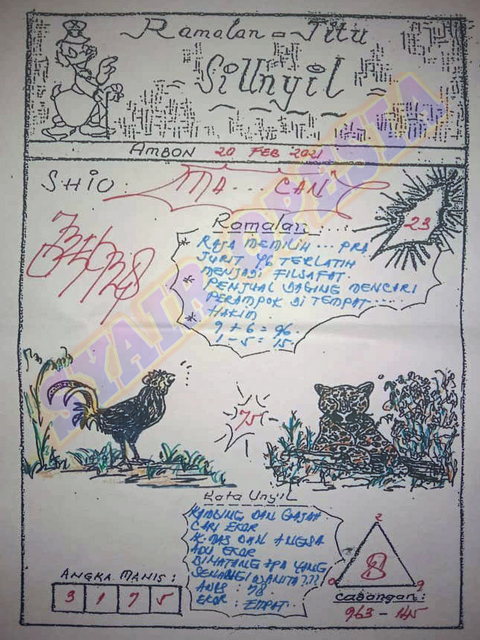 Ramalan = Jitu
SiUnyil
AMBON 20 FEB 2021
SHIO: MA... CAN
23
Ramalan:...
* RAJA MEMILIH... PRA
JURIT YG TERLATIH
MENJADI FILSAFAT.
* PENJUAL DAGING MENCARI
PERAMPOK DI TEMPAT....
* HAKIM.
9 + 6 = 96.
1 - 5 = 15.
SYAIR OPESIA
75
Kata Unyil
KAMBING DAN GAJAH
CARI EKOR
DAN ANGSA
ADU EKOR
BINATANG APA YANG
WANITA???
78.
EKOR: EMPAT.
ANGKA MANIS:
3 1 7 5
2
8
0 9
Cabangan:
963 - 145